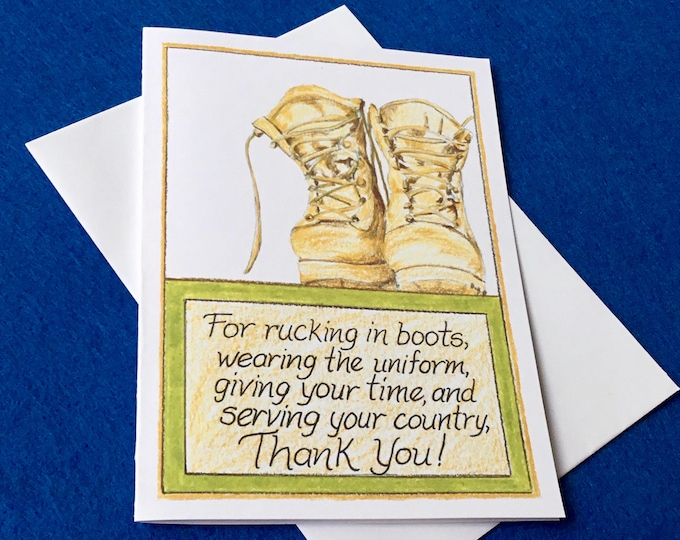 For rucking in boots,
wearing the uniform,
giving your time, and
serving your country,
Thank You!